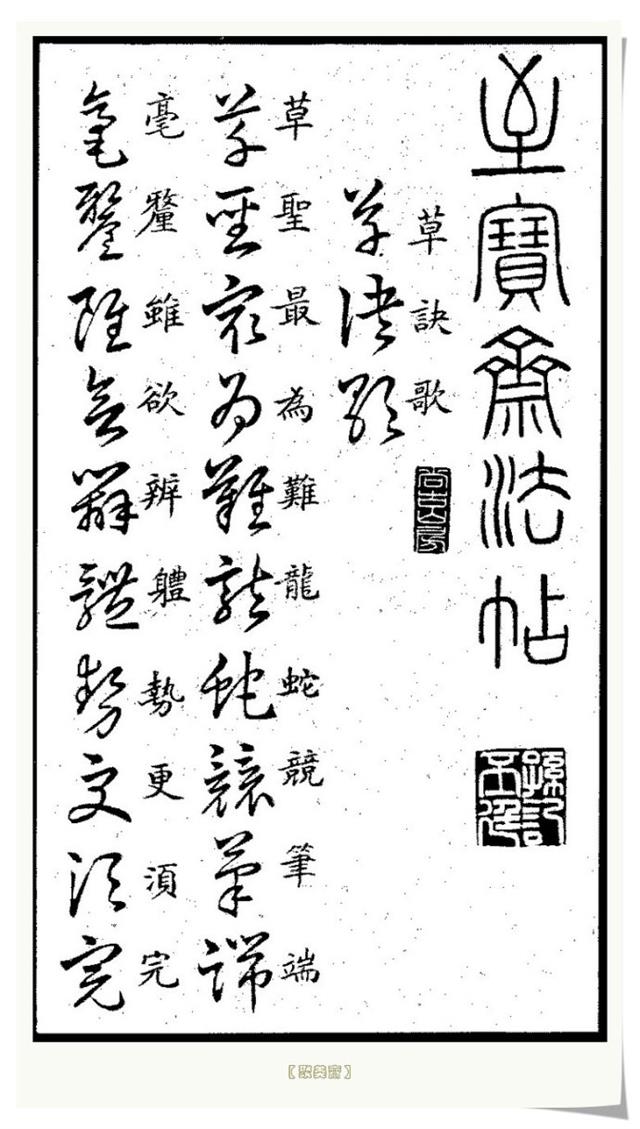 至寶齋法帖
草訣歌
草訣歌
草聖最為難龍蛇競筆端
草聖最為難龍蛇競筆端
毫釐雖欲辨體勢更湏完
毫釐雖欲辨體勢更湏完